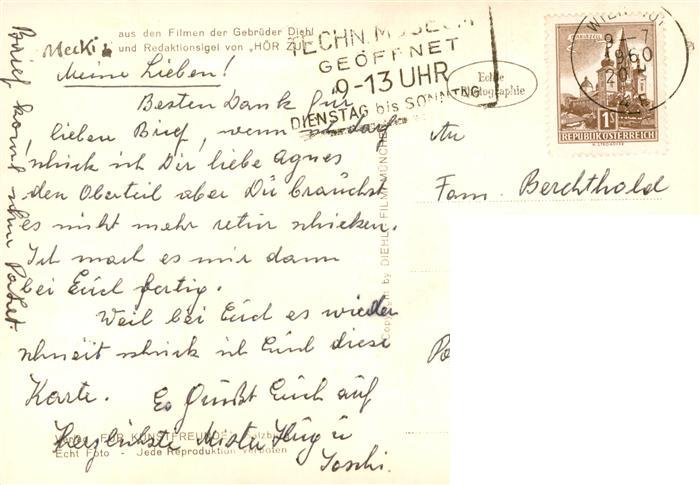 aus den Filmen der Gebrüder Diehl
Mecki und Redaktionsigel von „HÖR ZU"
Meine Lieben!
Besten Dank für
lieben Brief, wenn
schick ich Dir liebe Agnes
den Oberteil aber Du brauchst
es nicht mehr retur schicken.
Ich mach es mir dann
bei Euch fertig.
Weil bei Euch es wieder
schneit schick ich Euch diese
Karte. Es grüßt Euch auf
Herzlichste
Joschi.
FÜR KUNSTFREUNDE
Echt Foto - Jede Reproduktion verboten
Brief kommt ohne Paket.
Copyright by DIEHL-FILM, MÜNCHEN
TECHN. MUSEUM
GEÖFFNET
9-13 UHR
DIENSTAG bis SONNTAG
Echte
Photographie
WIEN
9-7
1960
1S
REPUBLIK ÖSTERREICH
An
Fam. Berchthold